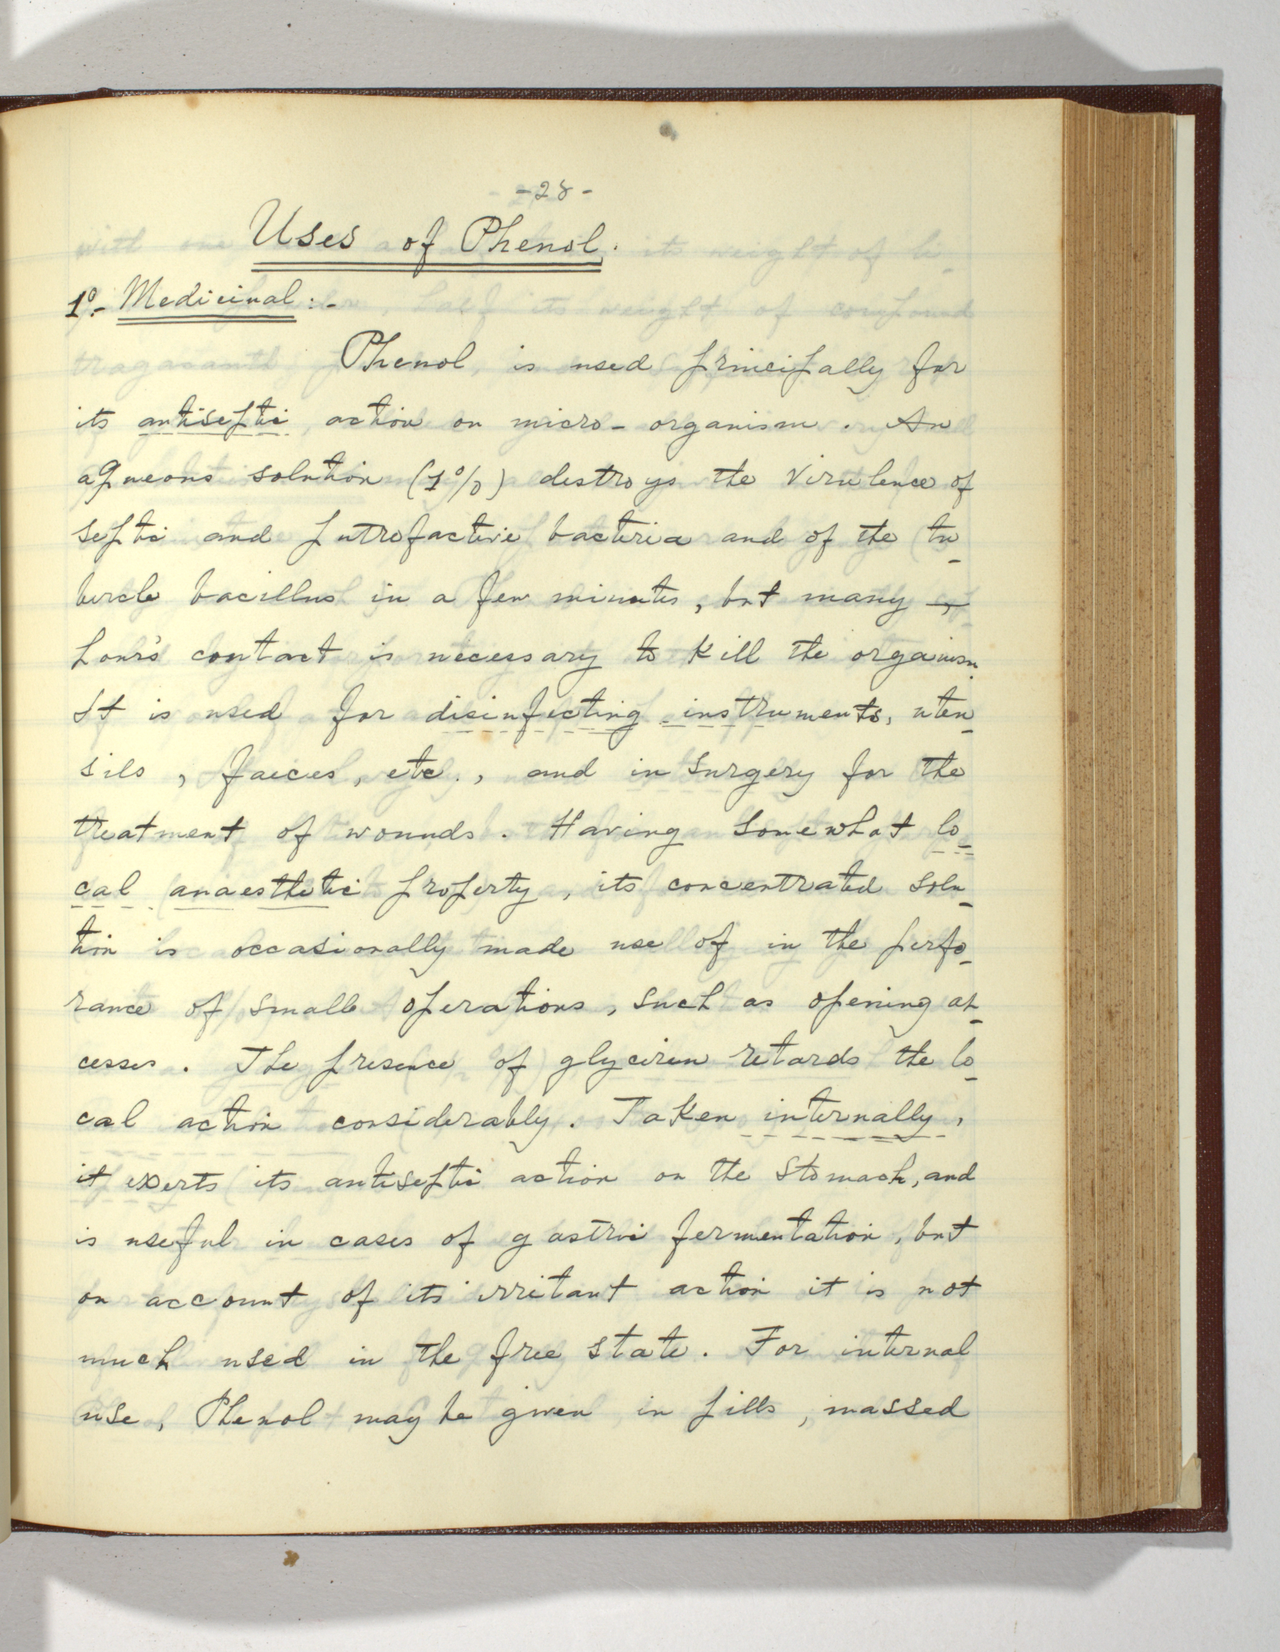 -28-
Uses of Phenol.
1º- Medicinal :-
Phenol is used principally for
its antiseptic action on micro-organism. An
aqueous solution (1%) destroys the virulence of
septic and putrofactive bacteria and of the tu-
bercle bacillus in a few minutes, but many
hour's contact is necessary to kill the organism.
It is used for disinfecting instruments, uten-
sils, faeces, etc., and in surgery for the
treatment of wounds. Having somewhat lo-
cal anaesthetic property, its concentrated solu-
tion is occasionally made use of in the perfo-
rance of small operations, such as opening ab-
cesses. The presence of glycerin retards the lo-
cal action considerably. Taken internally,
it experts its antiseptic action on the stomach, and
is useful in cases of gastric fermentation, but
on account of its irritant action it is not
much used in the free state. For internal
use, Phenol may be given in pills, massed